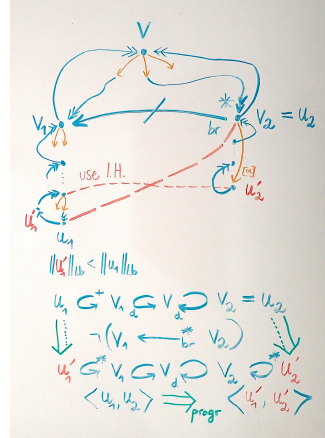 V
*
V₁
br
V₂ = u₂
[α]
use I.H.
u₁' u₁
u₂'
‖u₁'‖lb < ‖u₁‖lb
u₁ ↻⁺ V₁ d↻ V d↻ V₂ = u₂
¬(V₁ ←br** V₂)
u₁' ↻* V₁ d↻ V d↻ V₂ ↻* u₂'
⟨u₁, u₂⟩ ⇒progr ⟨u₁', u₂'⟩